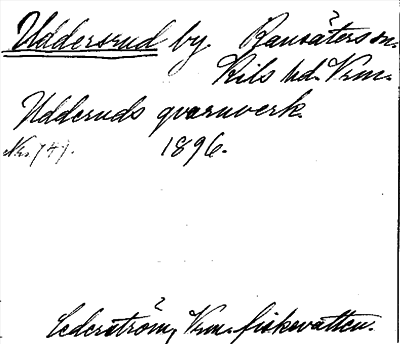 Uddersrud by. Ransäters sn.
Kils hd. Vrm.
Udderuds qvarnverk.
1896.
Cederström, Vrm. fiskevatten.